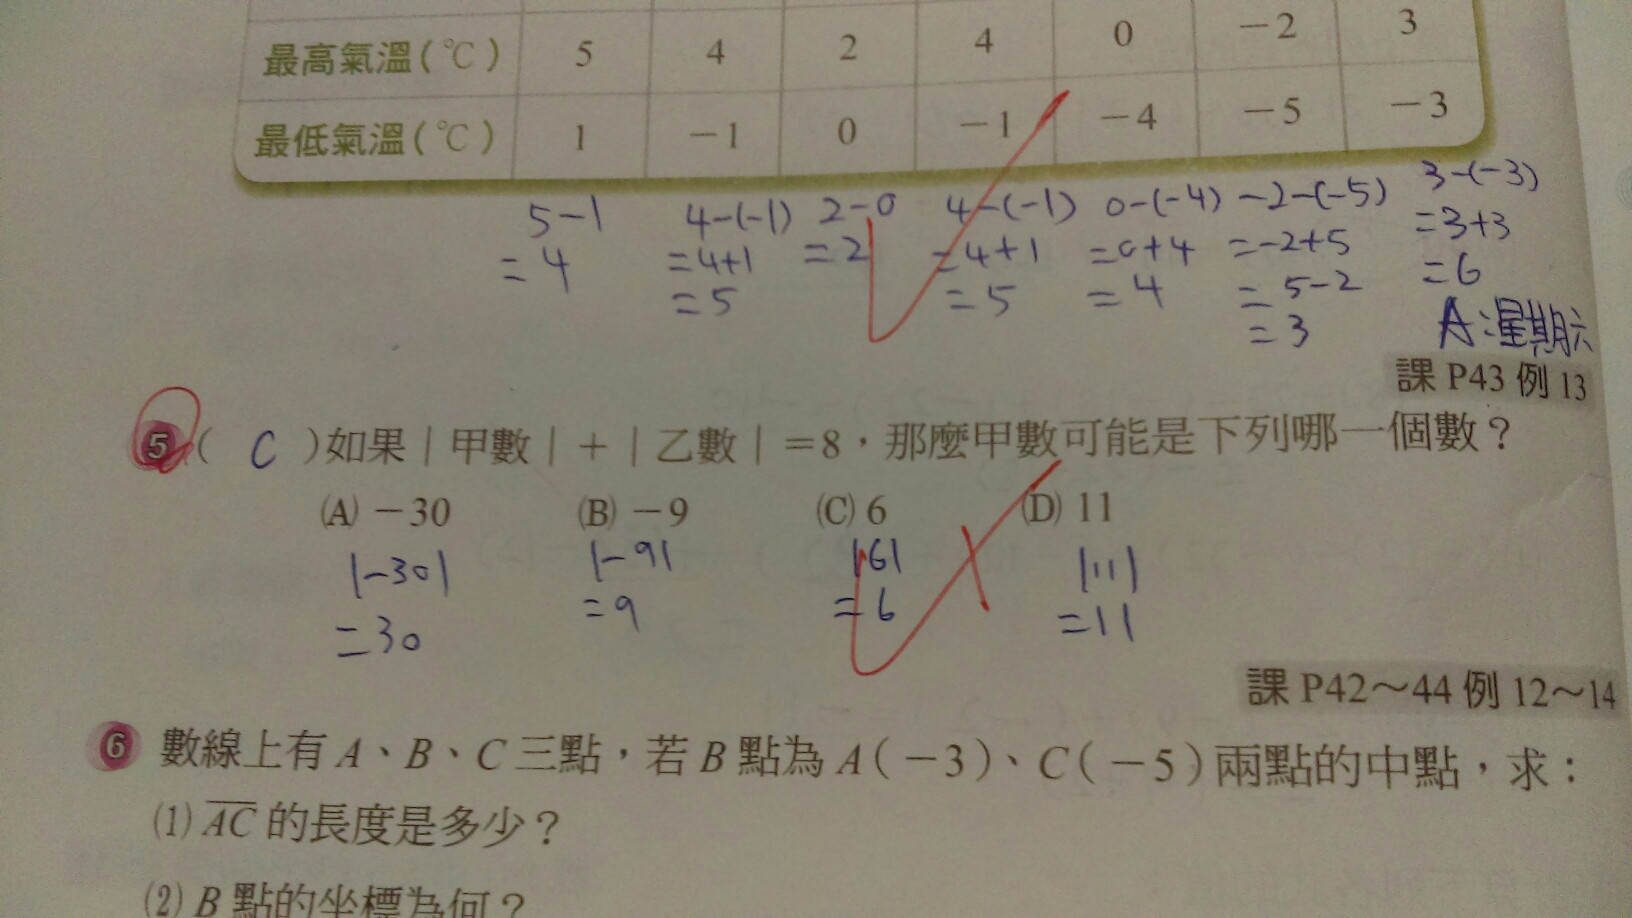 最高氣溫(℃) 5 4 2 4 0 －2 3
最低氣溫(℃) 1 －1 0 －1 －4 －5 －3
5－1 4－(－1) 2－0 4－(－1) 0－(－4) －2－(－5) 3－(－3)
=4 =4+1 =2 =4+1 =0+4 =－2+5 =3+3
=5 =5 =4 =5－2 =6
=3 A:星期六
課 P43 例 13
5 ( C )如果｜甲數｜＋｜乙數｜＝8，那麼甲數可能是下列哪一個數？
(A) －30 (B) －9 (C) 6 (D) 11
|－30| |－9| |6| |11|
=30 =9 =6 =11
課 P42～44 例 12～14
6 數線上有 A、B、C 三點，若 B 點為 A(－3)、C(－5)兩點的中點，求：
(1) AC 的長度是多少？
(2) B 點的坐標為何？